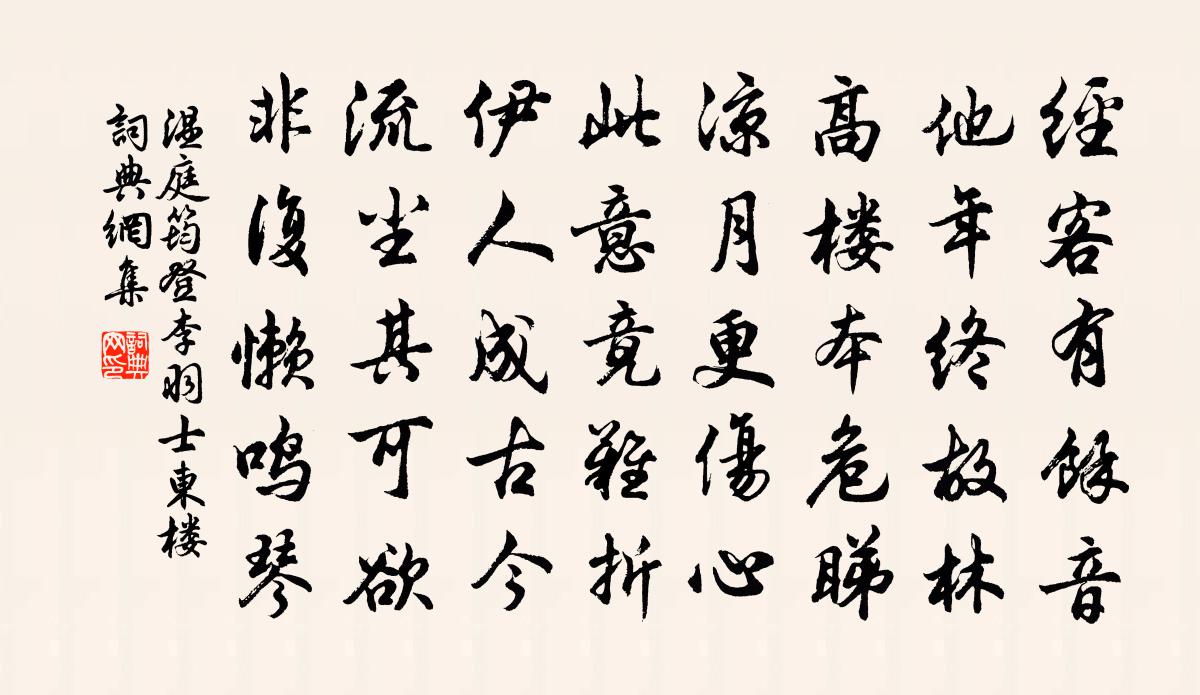 經客有餘音
他年終故林
高楼本危睇
凉月更傷心
此意竟難折
伊人成古今
流尘其可欲
非復懒鸣琴
温庭筠登李羽士東楼
詞典網集
詞典网印